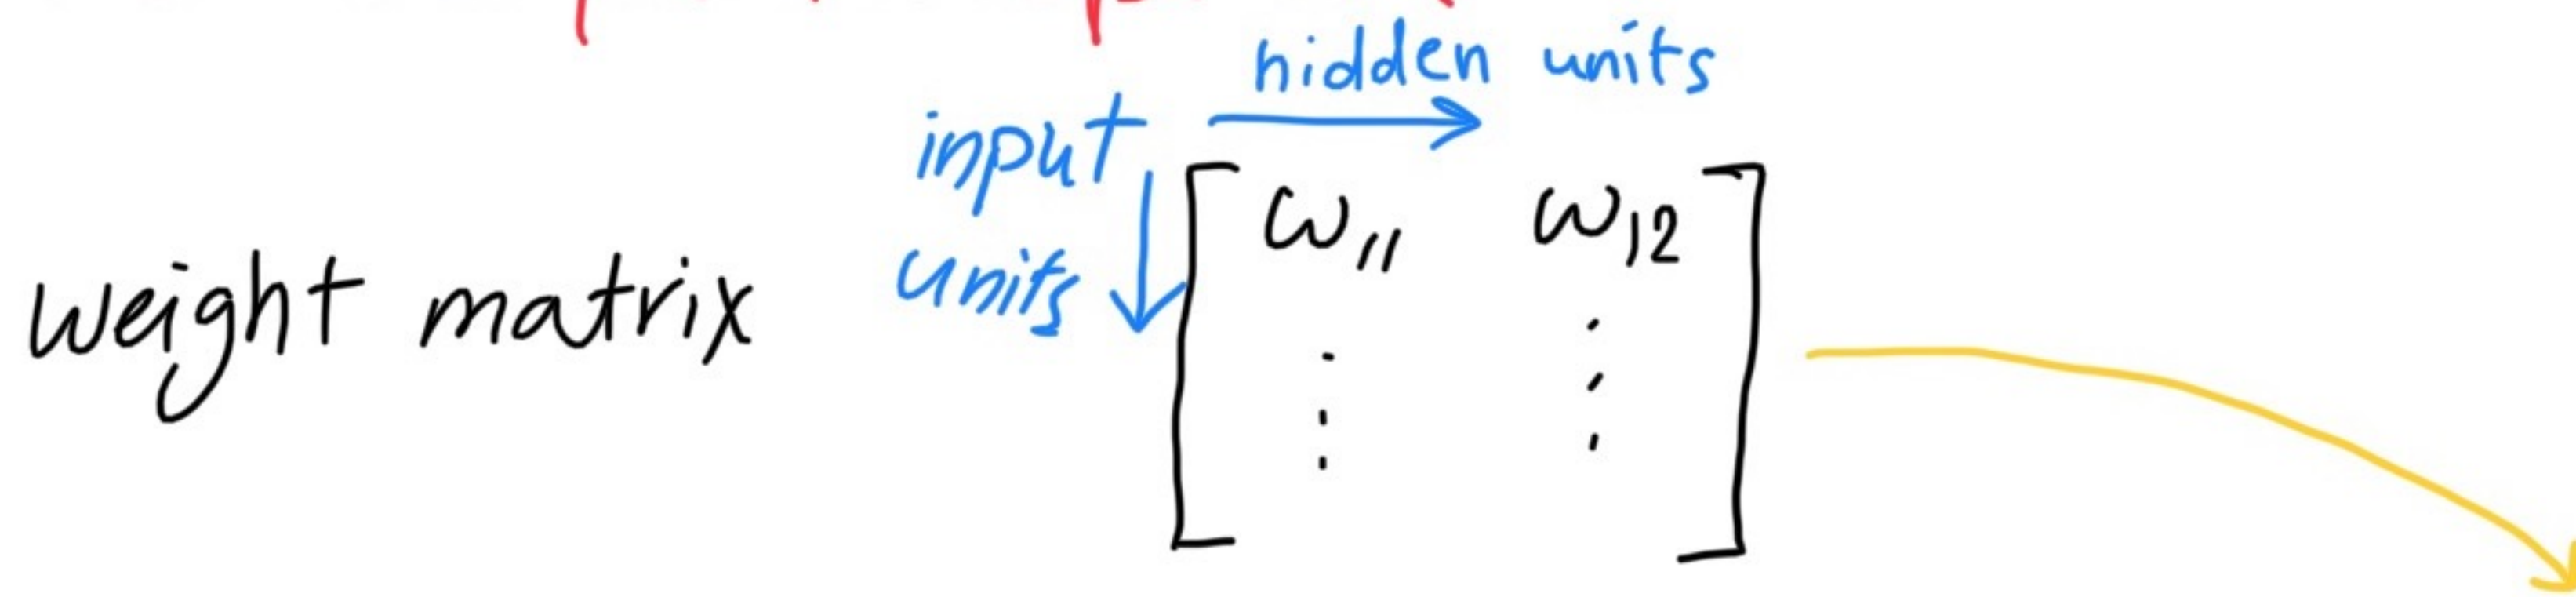 hidden units
input
units
weight matrix
ω₁₁ ω₁₂